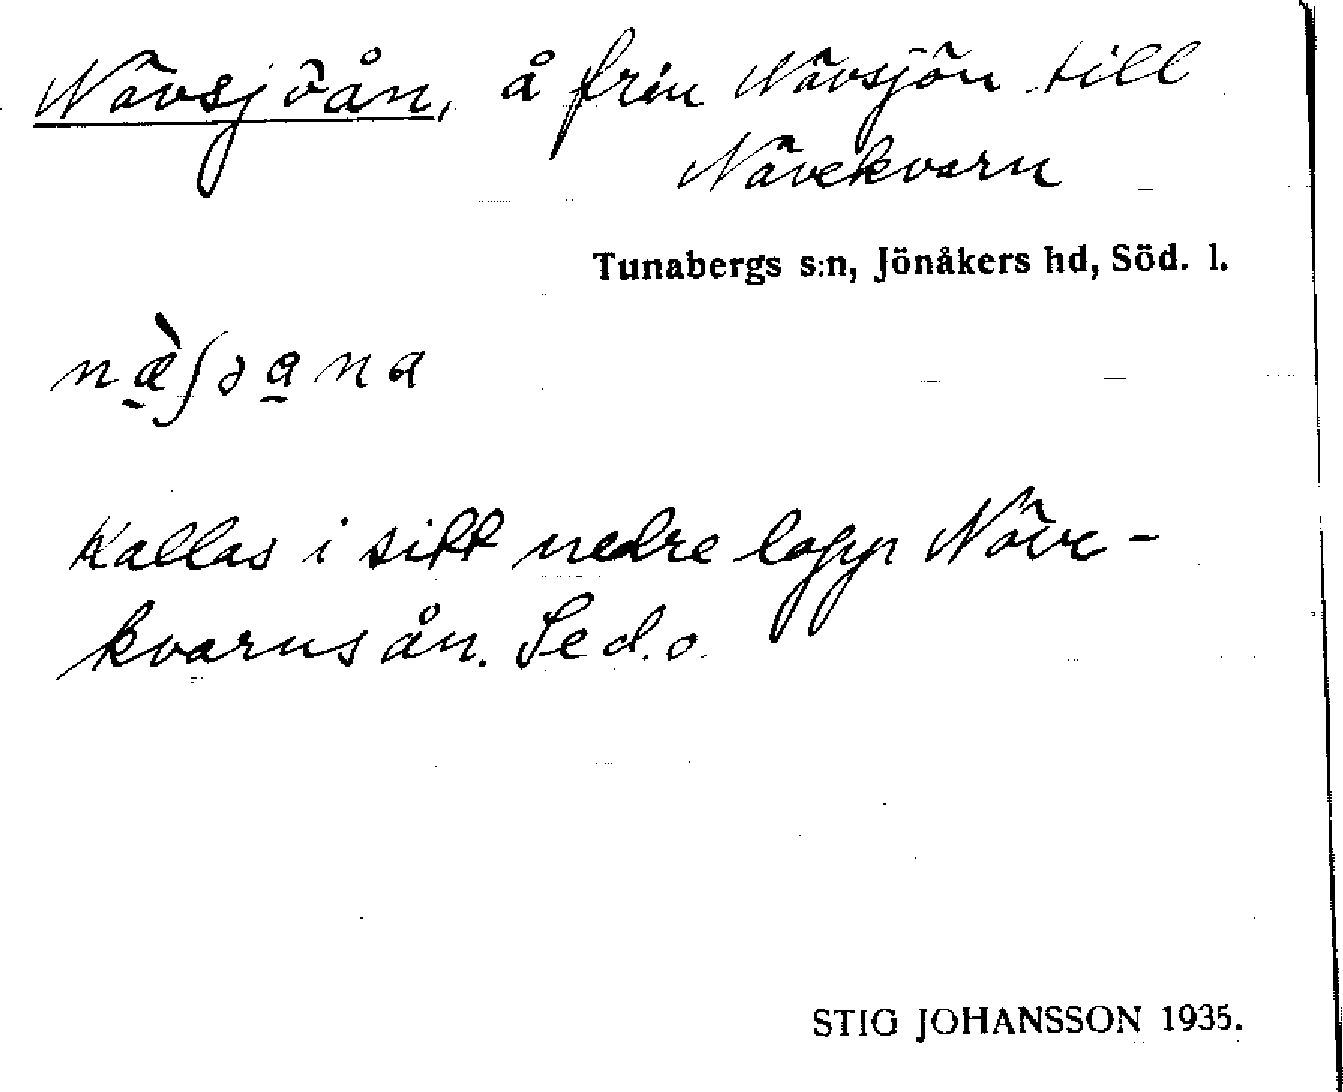 Nävsjöån, å från Nävsjön till
Nävekvarn
Tunabergs s:n, Jönåkers hd, Söd. l.
næ̀ʃəana
Kallas i sitt nedre lopp Näve-
kvarnsån. Se d.o.
STIG JOHANSSON 1935.